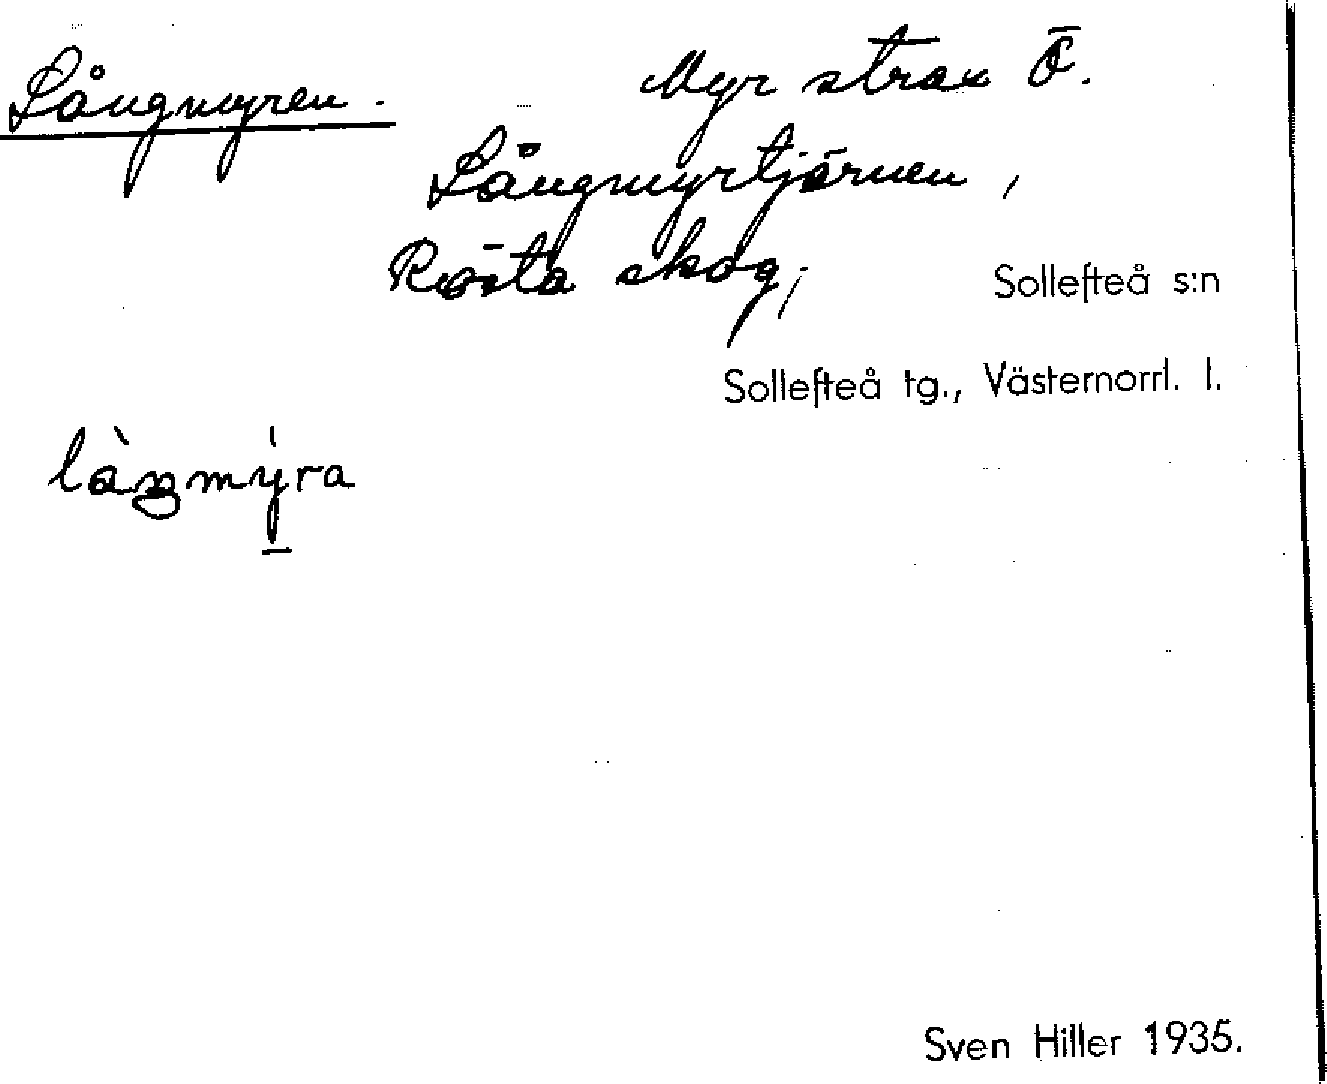 Långmyren.
Myr strax Ö.
Långmyrtjärnen,
Rösta skog,
Sollefteå s:n
Sollefteå tg., Västernorrl. l.
Sven Hiller 1935.